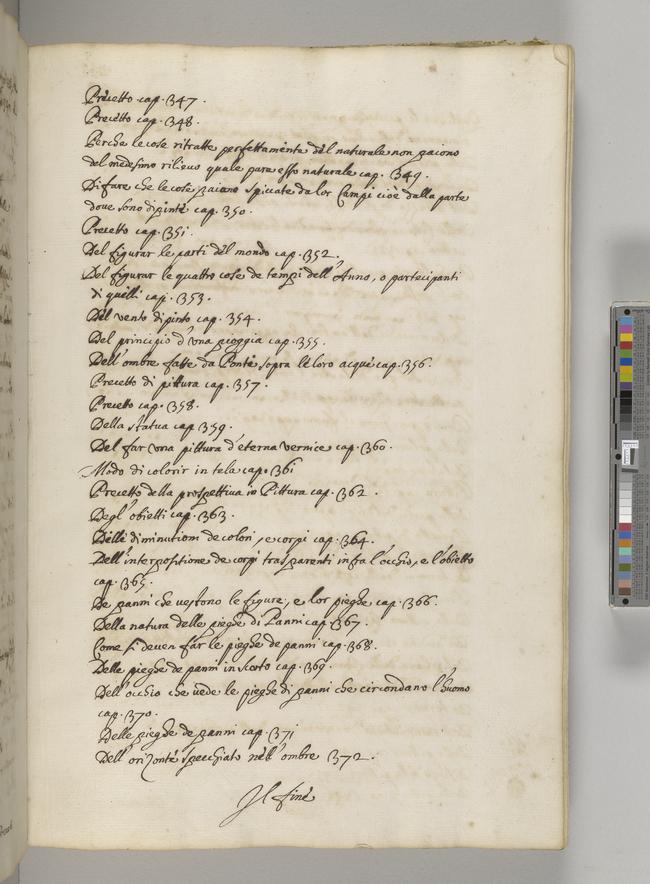 Precetto cap. 347.
Precetto cap. 348.
Perche le cose ritratte perfettamente del naturale non paiono
del medesimo rilievo quale pare esso naturale cap. 349.
Di fare che le cose paiano spiccate da lor Campi cioè dalla parte
dove sono dipinte cap. 350.
Precetto cap. 351.
Del figurar le parti del mondo cap. 352.
Del figurar le quattro cose de tempi dell'Anno, o partecipanti
di quelli cap. 353.
Del vento dipinto cap. 354.
Del principio d'vna pioggia cap. 355.
Dell'ombre fatte da Ponti sopra le loro acque cap. 356.
Precetto di pittura cap. 357.
Precetto cap. 358.
Della statua cap 359.
Del far vna pittura d'eterna vernice cap. 360.
Modo di colorir in tela cap. 361
Precetto della prospettiua in Pittura cap. 362.
Degl'obietti cap. 363.
Delle diminutioni de colori, e corpi cap. 364.
Dell'interpositione de corpi trasparenti infra l'occhio, e l'obietto
cap. 365.
De panni che vestono le figure, e lor pieghe cap. 366.
Della natura delle pieghe di Panni cap. 367.
Come si deven far le pieghe de panni cap. 368.
Delle pieghe de panni in scorto cap. 369.
Dell'occhio che vede le pieghe di panni che circondano l'huomo
cap. 370.
Delle pieghe de panni cap. 371
Dell'orizonte specchiato nell'ombre 372.
Il fine